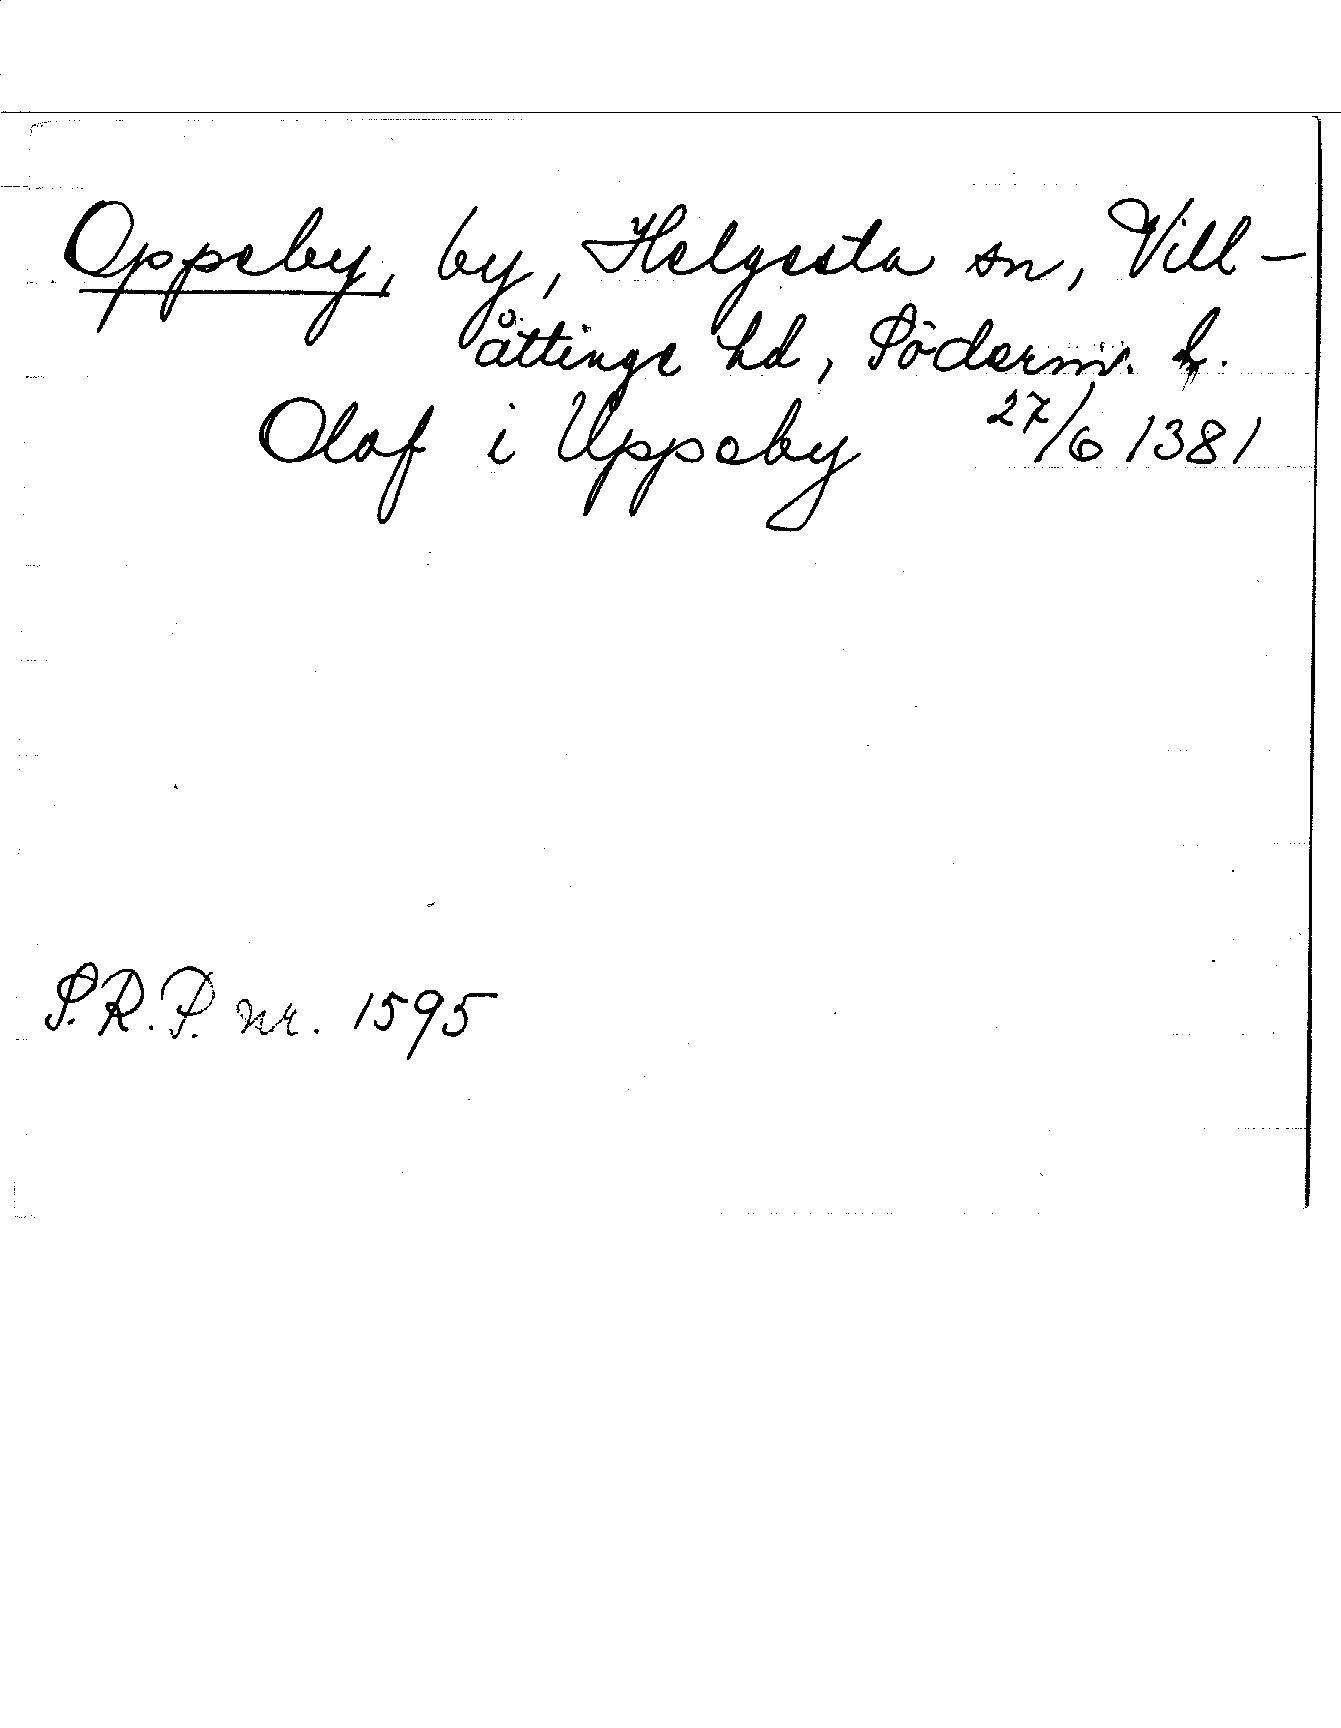 Oppeby, by, Helgesta sn, Vill-
åttinge hd, Söderm. l.
Olaf i Uppeby 27/6 1381
S.R.P. nr. 1595